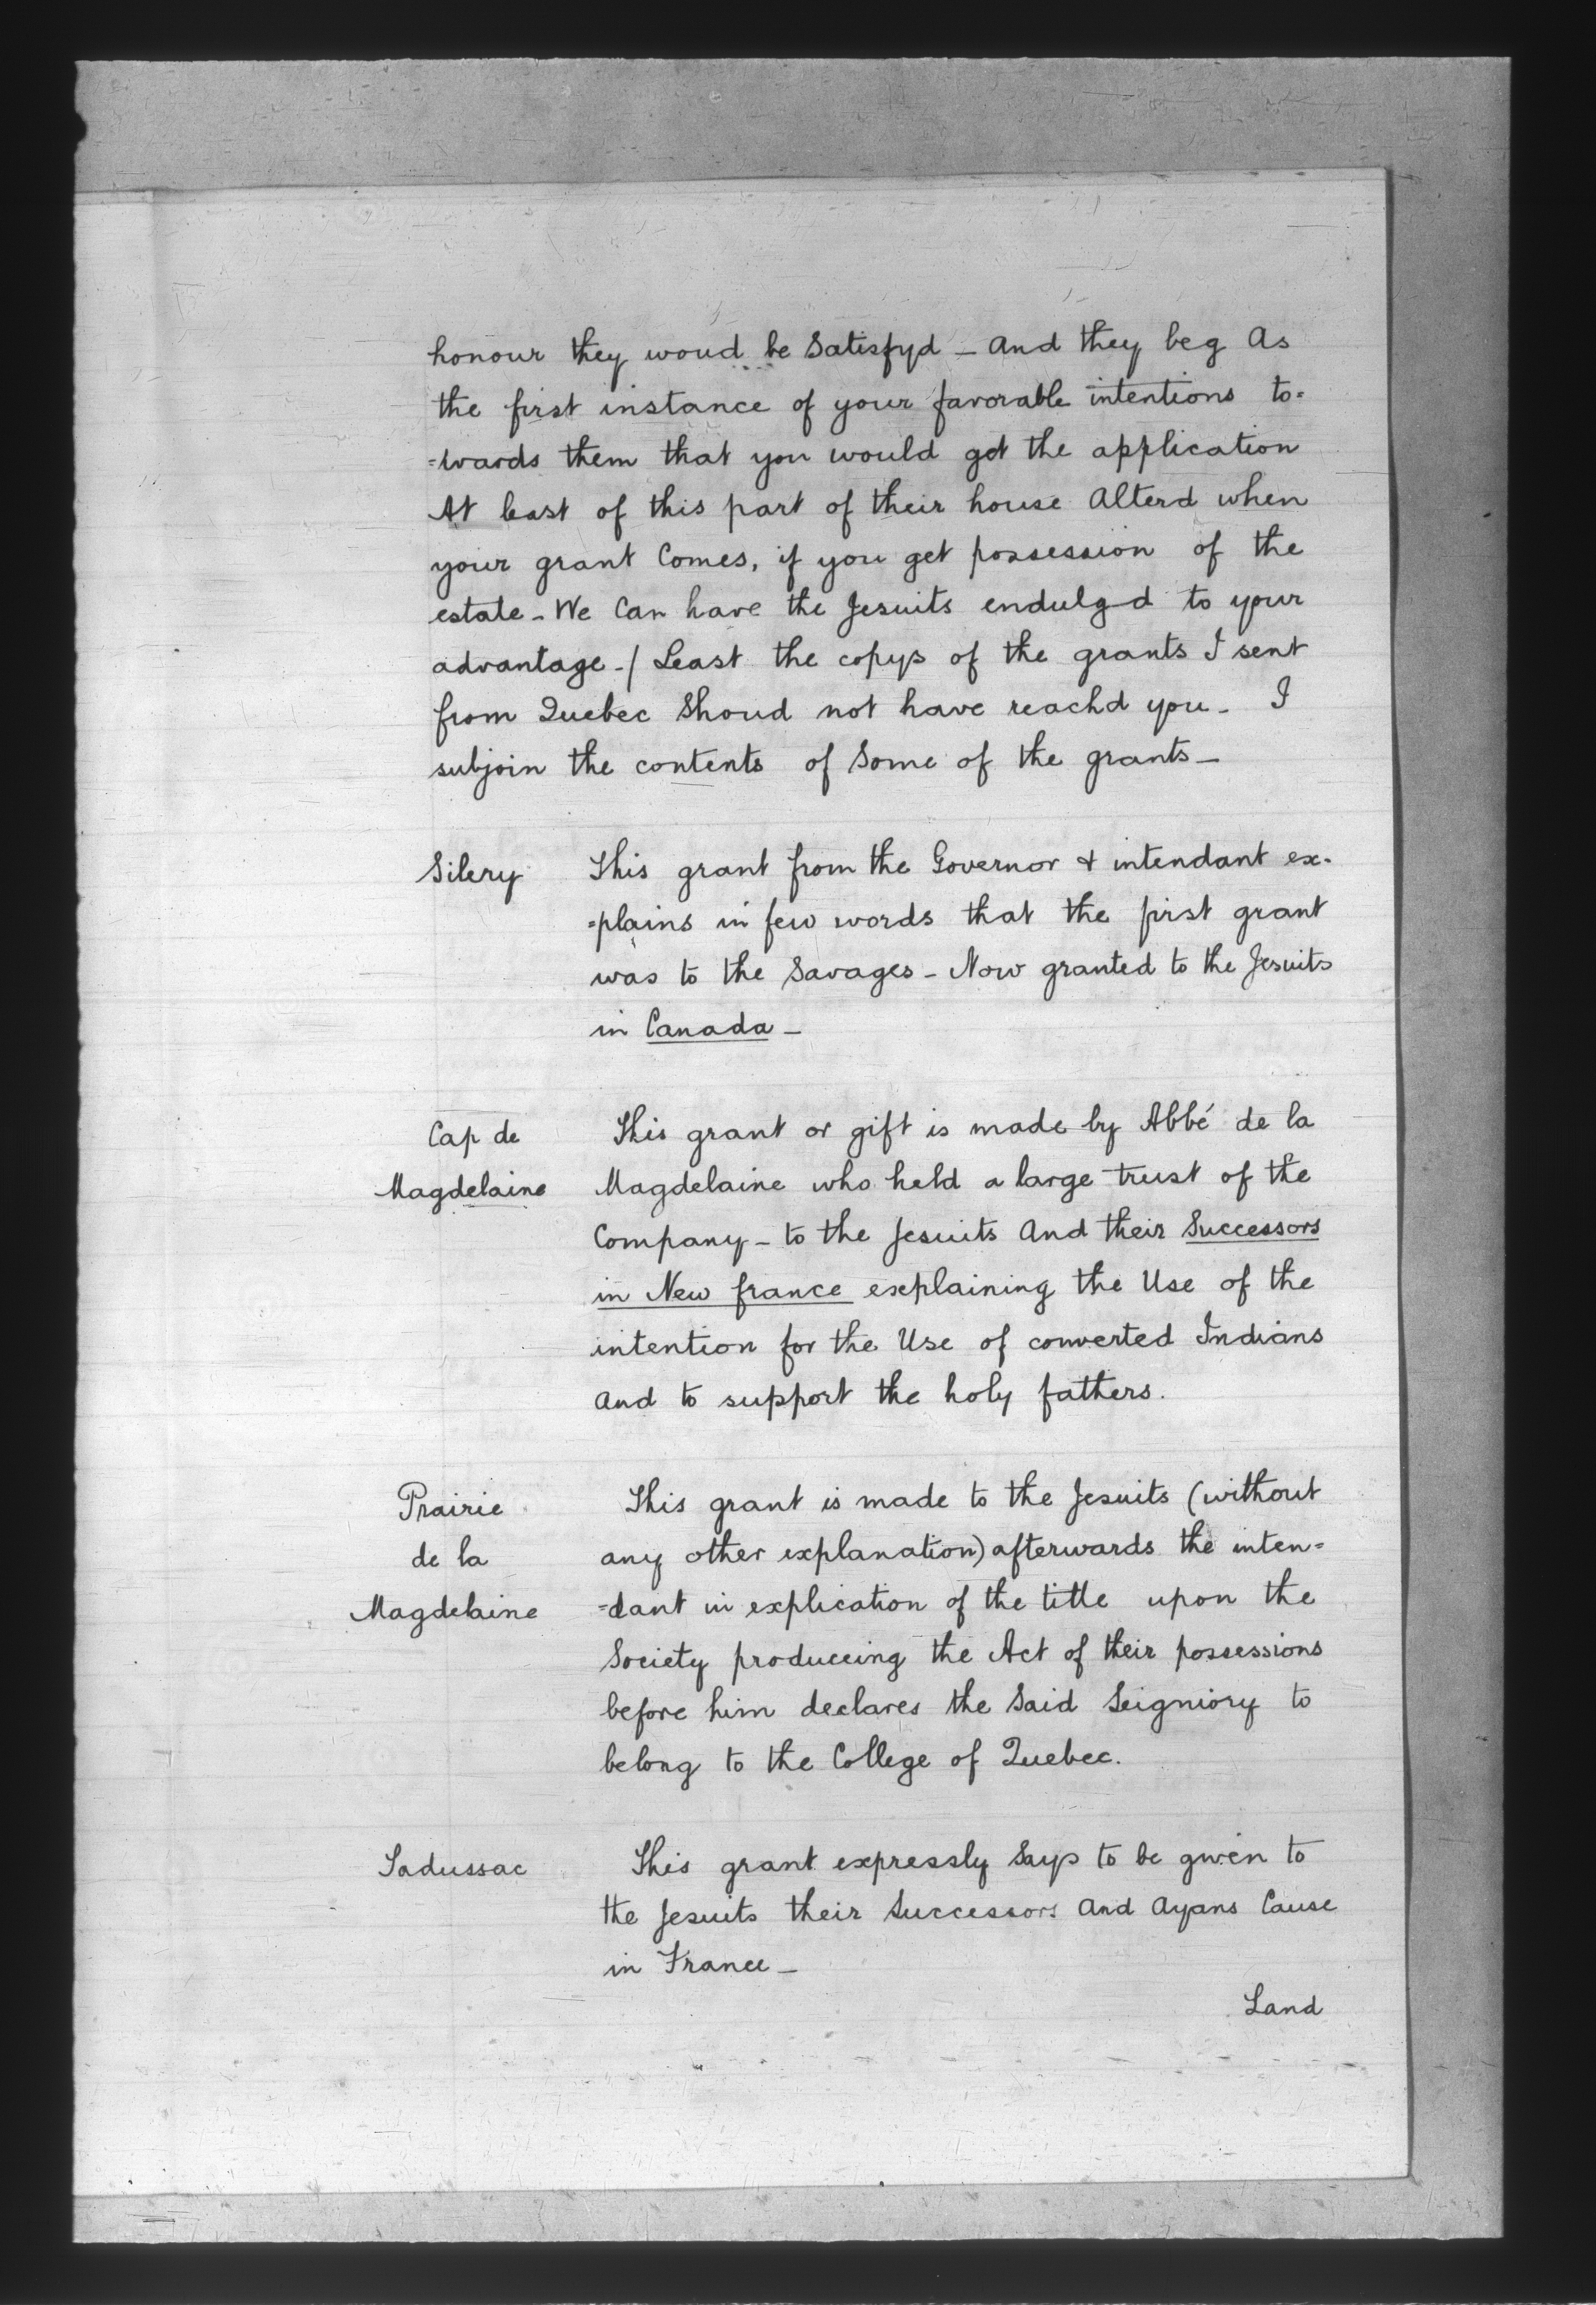 honour they woud be Satisfyd — And they beg As
the first instance of your favorable intentions to=
=wards them that you would get the application
At least of this part of their house Alterd when
your grant Comes, if you get possession of the
estate — We Can have the Jesuits endulg-d to your
advantage - / Least the copys of the grants I sent
from Quebec Shoud not have reachd you — I
subjoin the contents of Some of the grants —
Silery This grant from the Governor & intendant ex-
=plains in few words that the first grant
was to the Savages — Now granted to the Jesuits
in Canada —
Cap de This grant or gift is made by Abbé de la
Magdelaine Magdelaine who held a large trust of the
Company — to the Jesuits And their Successors
in New france explaining the Use of the
intention for the Use of converted Indians
And to support the holy fathers.
Prairie This grant is made to the Jesuits (without
de la any other explanation) afterwards the inten=
Magdelaine =dant in explication of the title upon the
Society produceing the Act of their possessions
before him declares the Said Seigniory to
belong to the College of Quebec.
Tadussac This grant expressly Says to be given to
the Jesuits their Successors And Ayans Cause
in France —
Land